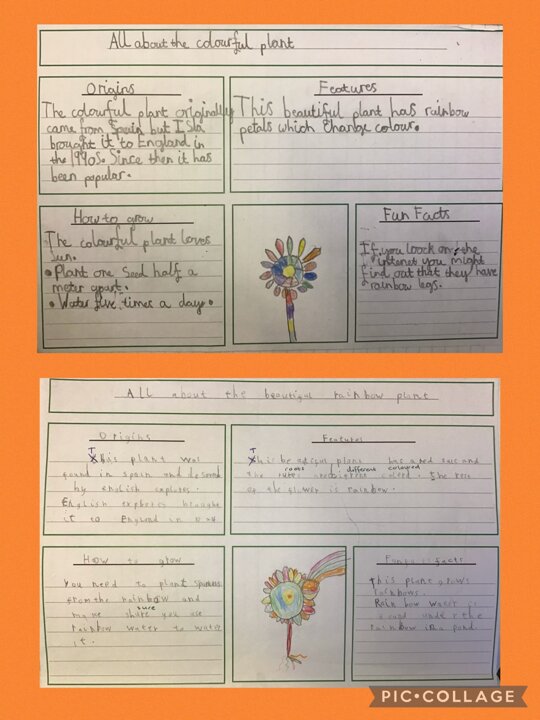 All about the colourful plant
Origins
The colourful plant originally
came from Spain but Isla
brought it to England in
the 1990s. Since then it has
been popular.
Features
This beautiful plant has rainbow
petals which change colour.
How to grow
The colourful plant loves
sun.
• Plant one seed half a
meter apart.
• Water five times a day.
Fun Facts
If you loock on the
intenet you might
find out that they have
rainbow legs.
All about the beautiful rainbow plant
Origins
This plant was
found in Spain and
by English
English brought
it to England in
Features
This plant has a red and
roots different coloured
the The rest
of the flower is rainbow.
How to grow
You need to plant
from the rainbow and
sure
make you use
rainbow water to water
it.
facts
This plant grows
rainbows.
Rainbow water is
found under the
rainbow in a pond.
PIC•COLLAGE